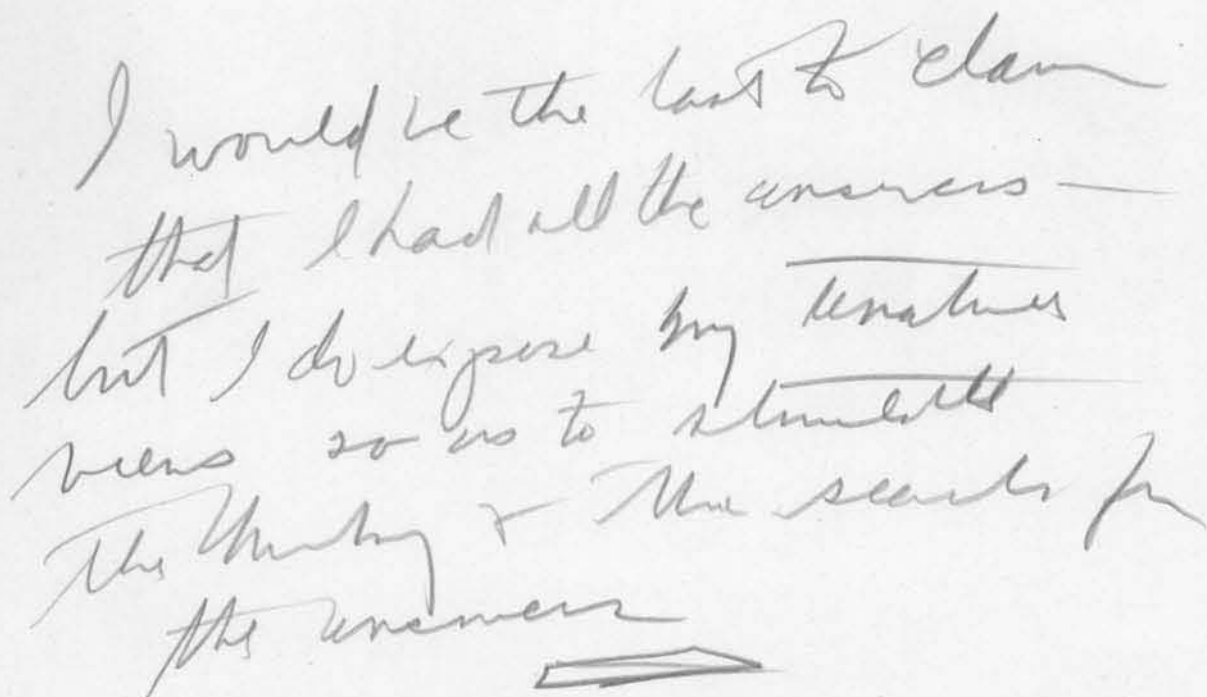 I would be the last to claim
that I had all the answers —
but I do expose my tentative
views so as to stimulate
the thinking & the search for
the answers